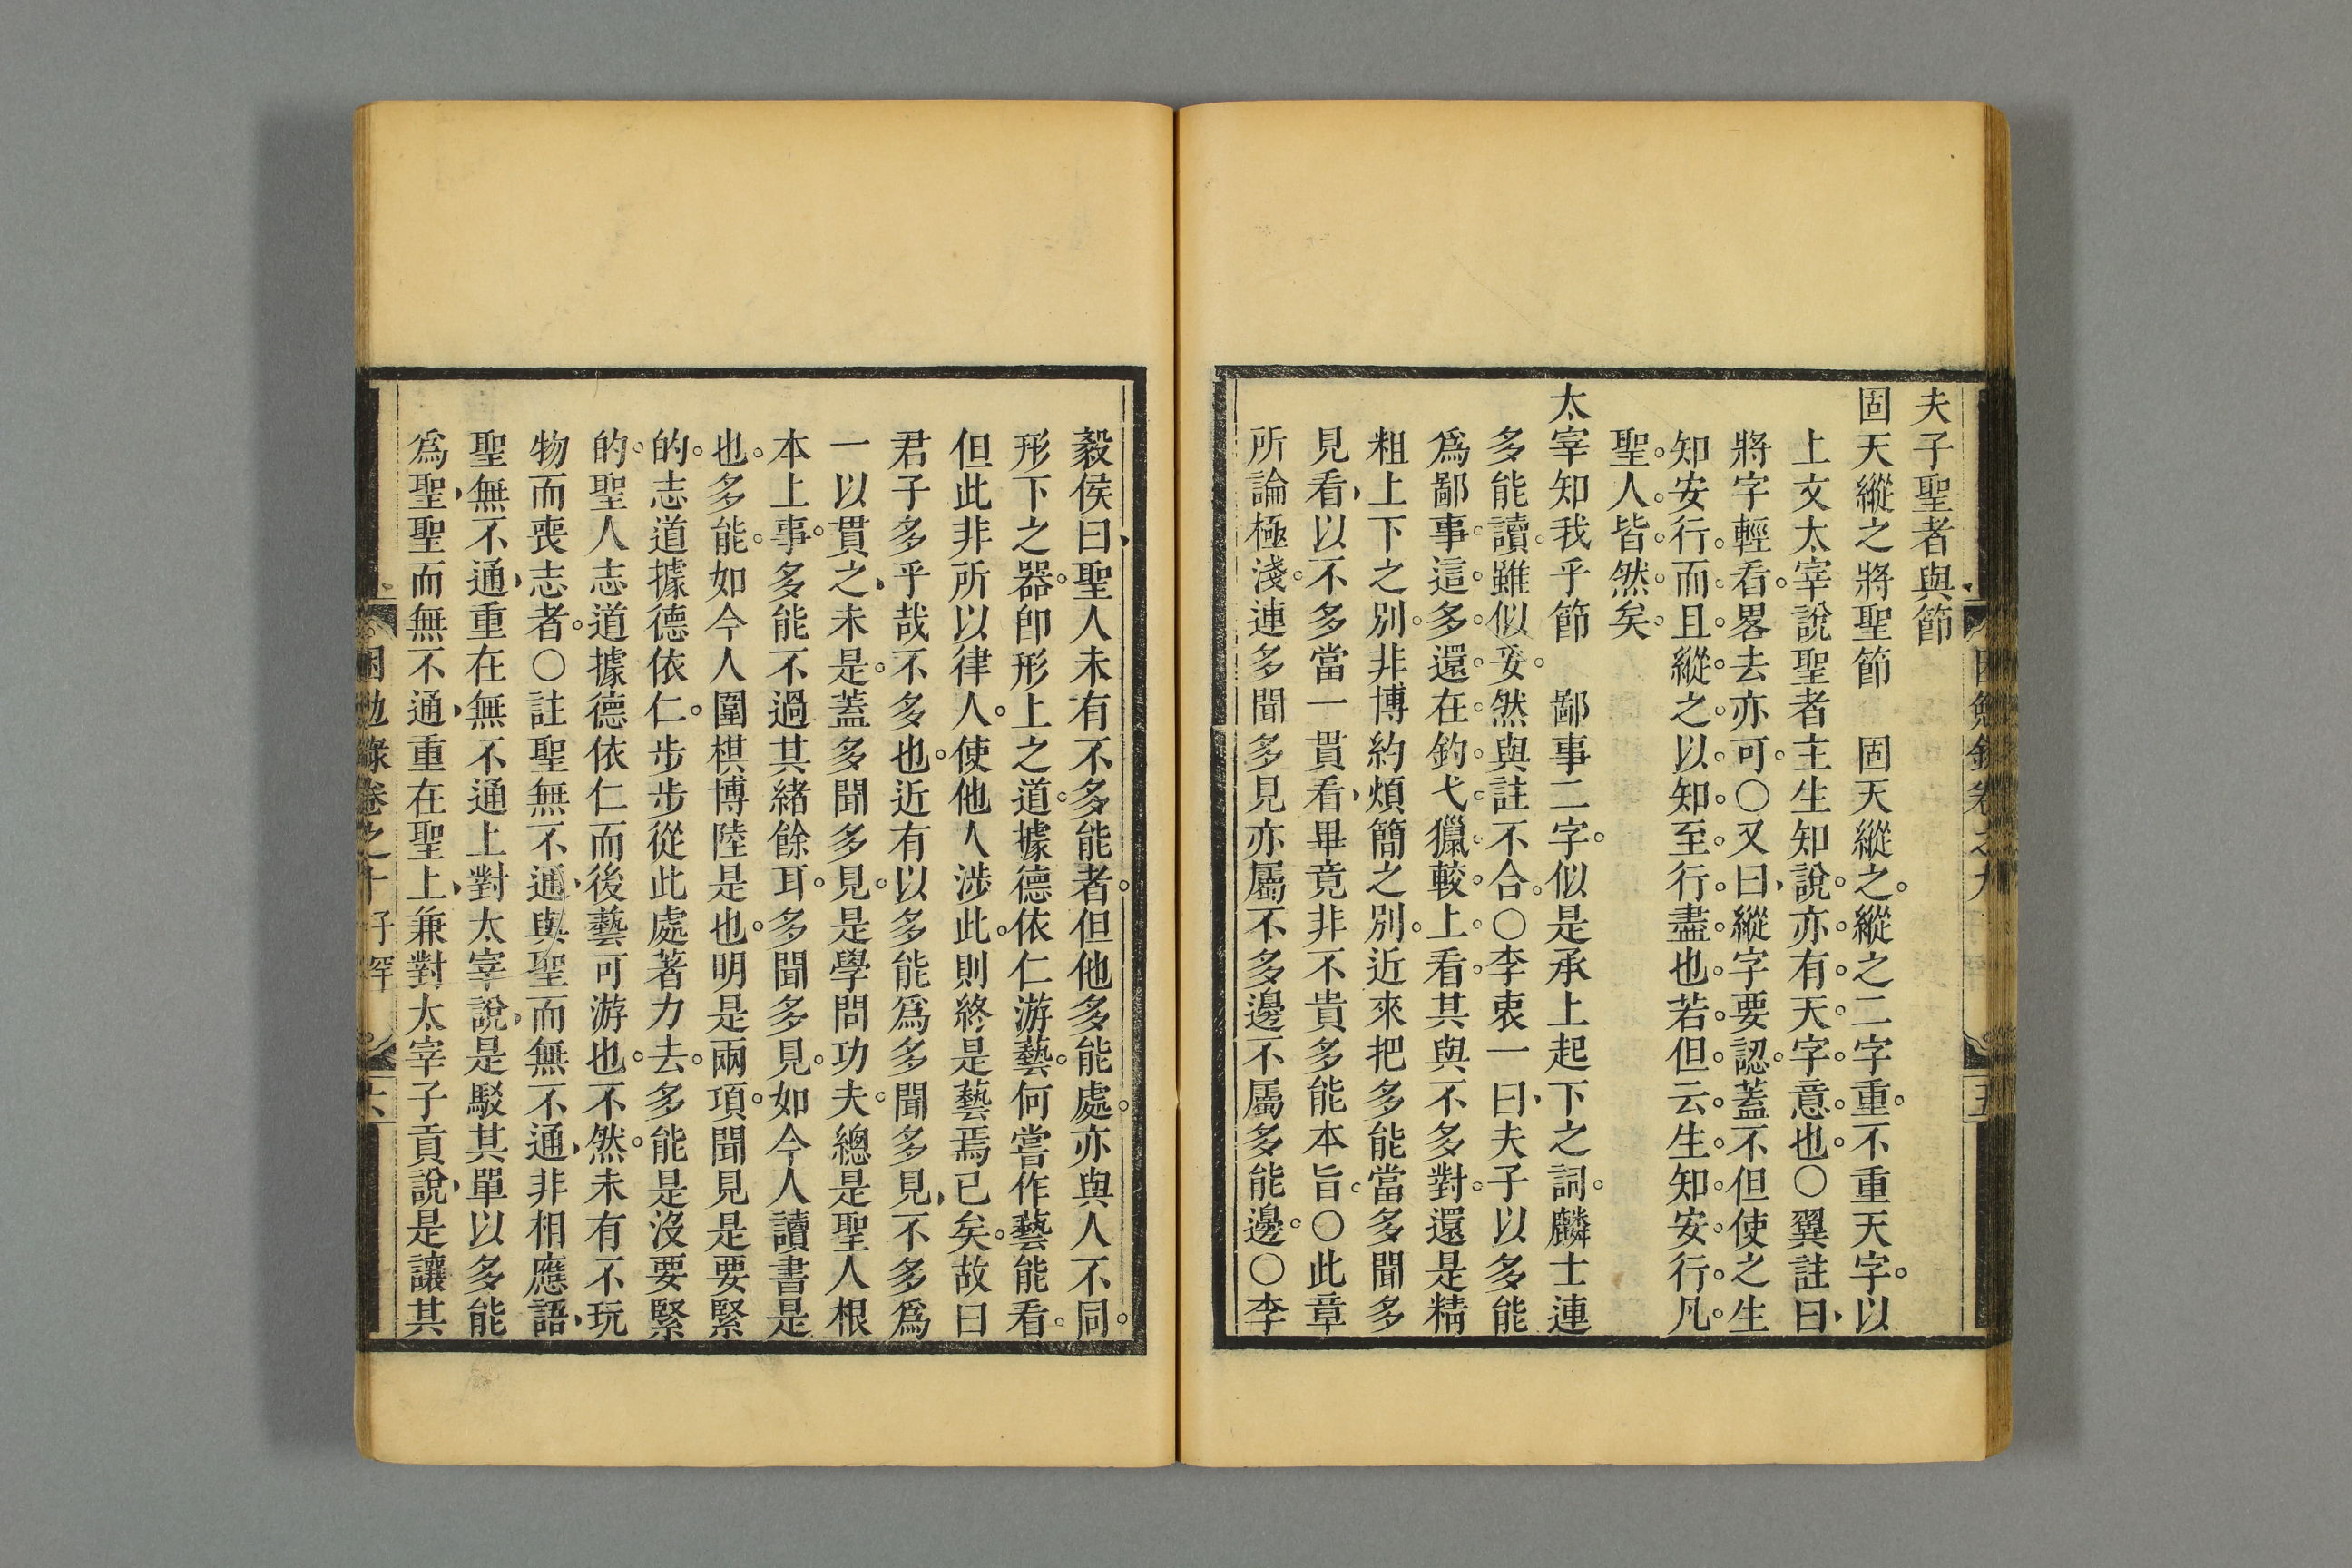 夫子聖者與節
固天縱之將聖節　固天縱之。縱之二字重。不重天字。以
上文太宰說聖者主生知說。亦有天字意也。○翼註曰、
將字輕看。畧去亦可。○又曰、縱字要認。蓋不但使之生
知安行。而且縱之。以知至行盡也。若但云生知安行。凡
聖人皆然矣。
太宰知我乎節　鄙事二字。似是承上起下之詞。麟士連
多能讀。雖似妥。然與註不合。○李衷一曰、夫子以多能
爲鄙事。這多。還在釣弋獵較上看。其與不多對。還是精
粗上下之別。非博約煩簡之別。近來把多能當多聞多
見看、以不多當一貫看、畢竟非不貴多能本旨。○此章
所論極淺。連多聞多見亦屬不多邊。不屬多能邊。○李
毅侯曰、聖人未有不多能者。但他多能處。亦與人不同。
形下之器。卽形上之道。據德依仁游藝。何嘗作藝能看。
但此非所以律人。使他人涉此。則終是藝焉已矣。故曰
君子多乎哉不多也。近有以多能爲多聞多見、不多爲
一以貫之、未是。蓋多聞多見。是學問功夫。總是聖人根
本上事。多能不過其緒餘耳。多聞多見。如今人讀書是
也。多能。如今人圍棋博陸是也。明是兩項。聞見是要緊
的。志道據德依仁。步步從此處著力去。多能是沒要緊
的。聖人志道據德依仁而後藝可游也。不然。未有不玩
物而喪志者。○註聖無不通、與聖而無不通、非相應語、
聖無不通、重在無不通上、對太宰說、是駁其單以多能
爲聖、聖而無不通、重在聖上、兼對太宰子貢說、是讓其
困勉錄卷之十 子罕 六